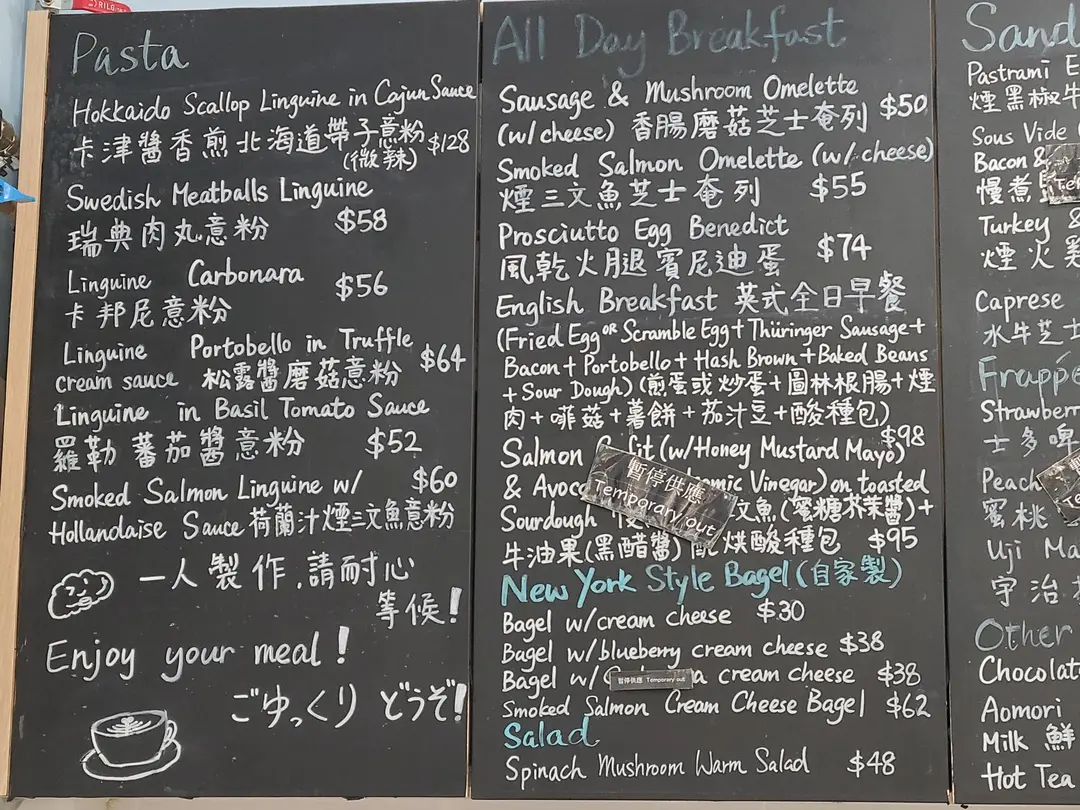 Pasta
Hokkaido Scallop Linguine in Cajun Sauce
卡津醬香煎北海道帶子意粉 $128
(微辣)
Swedish Meatballs Linguine
瑞典肉丸意粉 $58
Linguine Carbonara $56
卡邦尼意粉
Linguine Portobello in Truffle
cream sauce 松露醬磨菇意粉 $64
Linguine in Basil Tomato Sauce
羅勒蕃茄醬意粉 $52
Smoked Salmon Linguine w/ $60
Hollandaise Sauce 荷蘭汁煙三文魚意粉
一人製作,請耐心
等候!
Enjoy your meal!
ごゆっくりどうぞ!
All Day Breakfast
Sausage & Mushroom Omelette
(w/cheese) 香腸磨菇芝士奄列 $50
Smoked Salmon Omelette (w/cheese)
煙三文魚芝士奄列 $55
Prosciutto Egg Benedict
風乾火腿賓尼迪蛋 $74
English Breakfast 英式全日早餐
(Fried Egg or Scramble Egg+Thüringer Sausage+
Bacon+Portobello+Hash Brown+Baked Beans
+Sour Dough)(煎蛋或炒蛋+圖林根腸+煙
肉+啡菇+薯餅+茄汁豆+酸種包)
$98
Salmon (w/Honey Mustard Mayo)
& Vinegar) on toasted
Sourdough 文魚(蜜糖芥茉醬)+
牛油果(黑醋醬) 烘酸種包 $95
暫停供應
Temporary out
New York Style Bagel (自家製)
Bagel w/cream cheese $30
Bagel w/blueberry cream cheese $38
Bagel w/ cream cheese $38
暫停供應 Temporary out
Smoked Salmon Cream Cheese Bagel $62
Salad
Spinach Mushroom Warm Salad $48
Sand
Pastrami E
煙黑椒牛
Sous Vide
Bacon &
慢煮
Turkey &
煙火雞
Caprese
水牛芝士
Frappé
Strawberr
士多啤
Peach
蜜桃
Uji Ma
宇治
Other
Chocolat
Aomori
Milk 鮮
Hot Tea